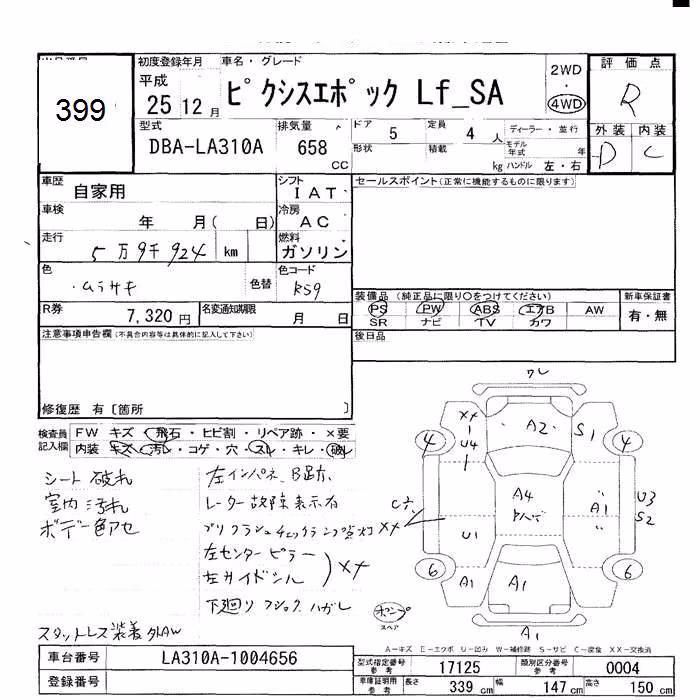 399
初度登録年月
平成
25 12 月
車名・グレード
ピクシスエポック Lf_SA
2WD
・
4WD
評 価 点
R
型式
DBA-LA310A
排気量
658
cc
ドア 5
定員 4 人
ディーラー・並行
形状
積載 kg
モデル年式 年
ハンドル 左・右
外装 内装
D C
車歴
自家用
シフト
I A T
セールスポイント(正常に機能するものに限ります)
車検
年 月( 日)
冷房
A C
走行
5 万 9千 924 km
燃料
ガソリン
色
ムラサキ
色替
色コード
R59
R券
7,320 円
名変通知期限
月 日
装備品 (純正品に限り○をつけてください)
PS PW ABS エアB AW
SR ナビ TV カワ
新車保証書
有・無
注意事項申告欄(不具合内容等は具体的に記入して下さい)
後日品
修復歴 有〔箇所 〕
検査員
記入欄
FW キズ・飛石・ヒビ割・リペア跡・×要
内装 キズ・汚レ・コゲ・穴・スレ・キレ・破レ
シート 破れ
室内 汚れ
ボデー色アセ
左インパネ B跡
レーダー故障表示有
プリクラッシュチェックランプ点灯 XX
左センターピラー
左サイドシル
XX
下廻り フジョック ハガレ
スタットレス装着 外AW
ワレ
XX
U4
A2
S1
4
4
A4
ヤハデ
A1
U3
S2
C穴
U1
6
6
A1
A1
A1
ボンプ
スペア
A-キズ E-エクボ U-凹み W-補修跡 S-サビ C-腐食 XX-交換済
車台番号
LA310A-1004656
登録番号
型式指定番号
参考
17125
類別区分番号
参考
0004
車庫証明用
参考
長さ 339 cm
幅 147 cm
高さ 150 cm